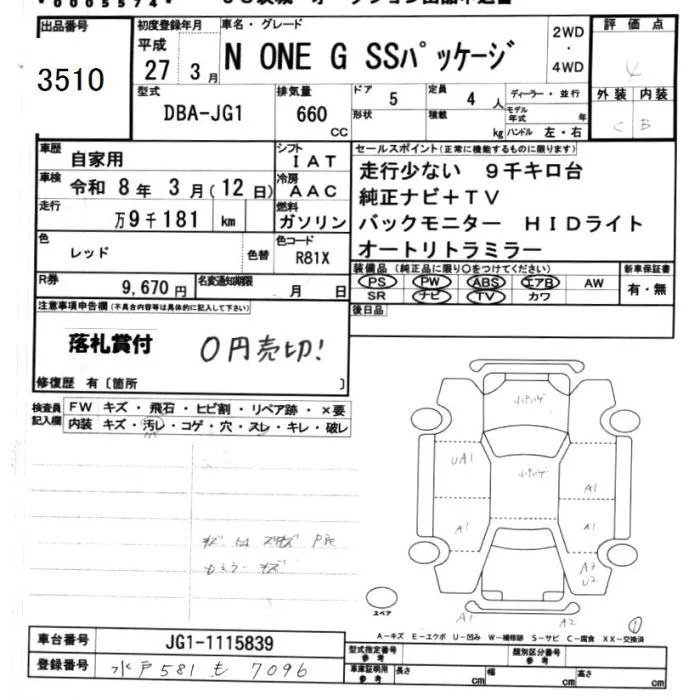 0005574
出品番号
3510
初度登録年月
平成
27 3月
車名・グレード
N ONE G SSパッケージ
2WD
・
4WD
評価点
4
型式
DBA-JG1
排気量
660
CC
ドア
5
形状
定員
4人
積載
kg
ディーラー・並行
モデル年式 年
ハンドル 左・右
外装 内装
C B
車歴
自家用
シフト
IAT
車検
令和 8年 3月(12日)
冷房
AAC
走行
万9千181 km
燃料
ガソリン
色
レッド
色替
色コード
R81X
R券
9,670円
名変通知期限
月 日
セールスポイント(正常に機能するものに限ります)
走行少ない 9千キロ台
純正ナビ+TV
バックモニター HIDライト
オートリトラミラー
装備品(純正品に限り○をつけてください)
PS PW ABS エアB AW
SR ナビ TV カワ
新車保証書
有・無
後日品
注意事項申告欄(不具合内容等は具体的に記入して下さい)
落札賞付 0円売切!
修復歴 有〔箇所 〕
検査員記入欄
FW キズ・飛石・ヒビ割・リペア跡・×要
内装 キズ・汚レ・コゲ・穴・スレ・キレ・破レ
UA1
A1
A1
A1
A3
U2
A1
A2
スペア
1
A-キズ E-エクボ U-凹み W-補修跡 S-サビ C-腐食 XX-交換済
車台番号
JG1-1115839
登録番号
水戸581も7096
型式指定番号
参考
類別区分番号
参考
車庫証明用
参考
長さ cm
幅 cm
高さ cm